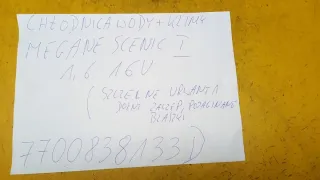 CHŁODNICA WODY + KLIMY
MEGANE SCENIC I
1,6 16V
( SZCZELNE UŁAMANY
DOLNY ZACZEP, PODGINANE
BLASZKI
7700838133D